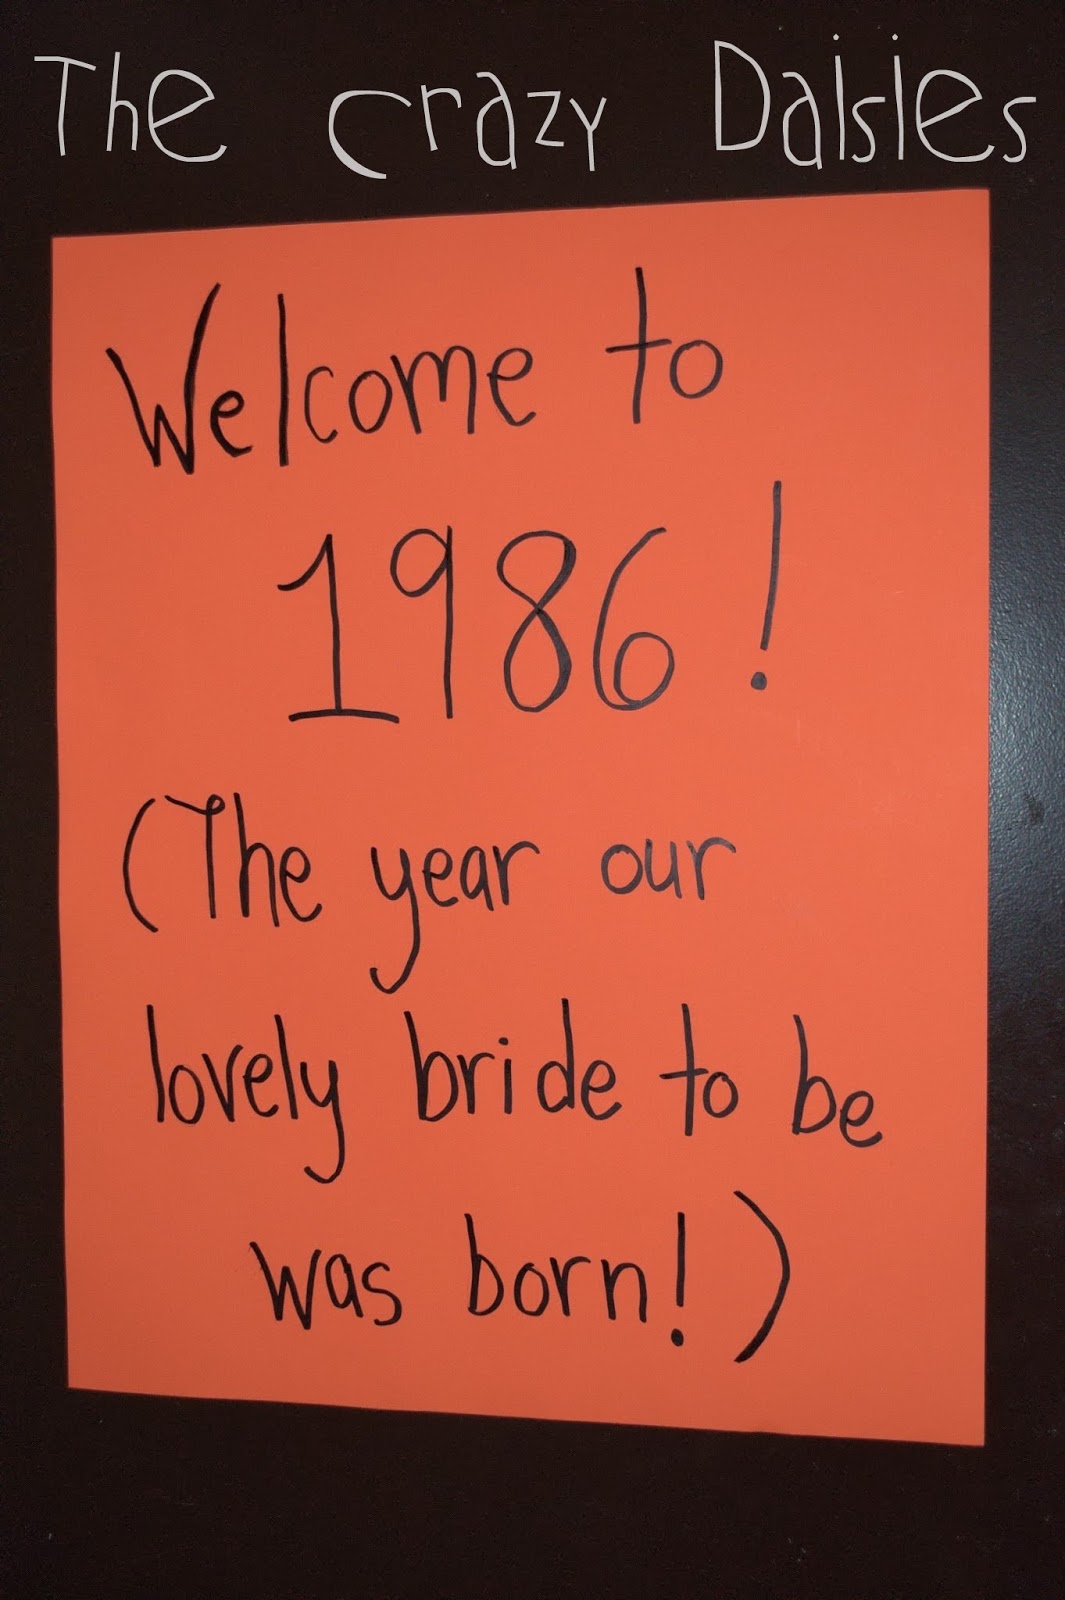 The crazy Daisies
Welcome to
1986!
(The year our
lovely bride to be
was born!)